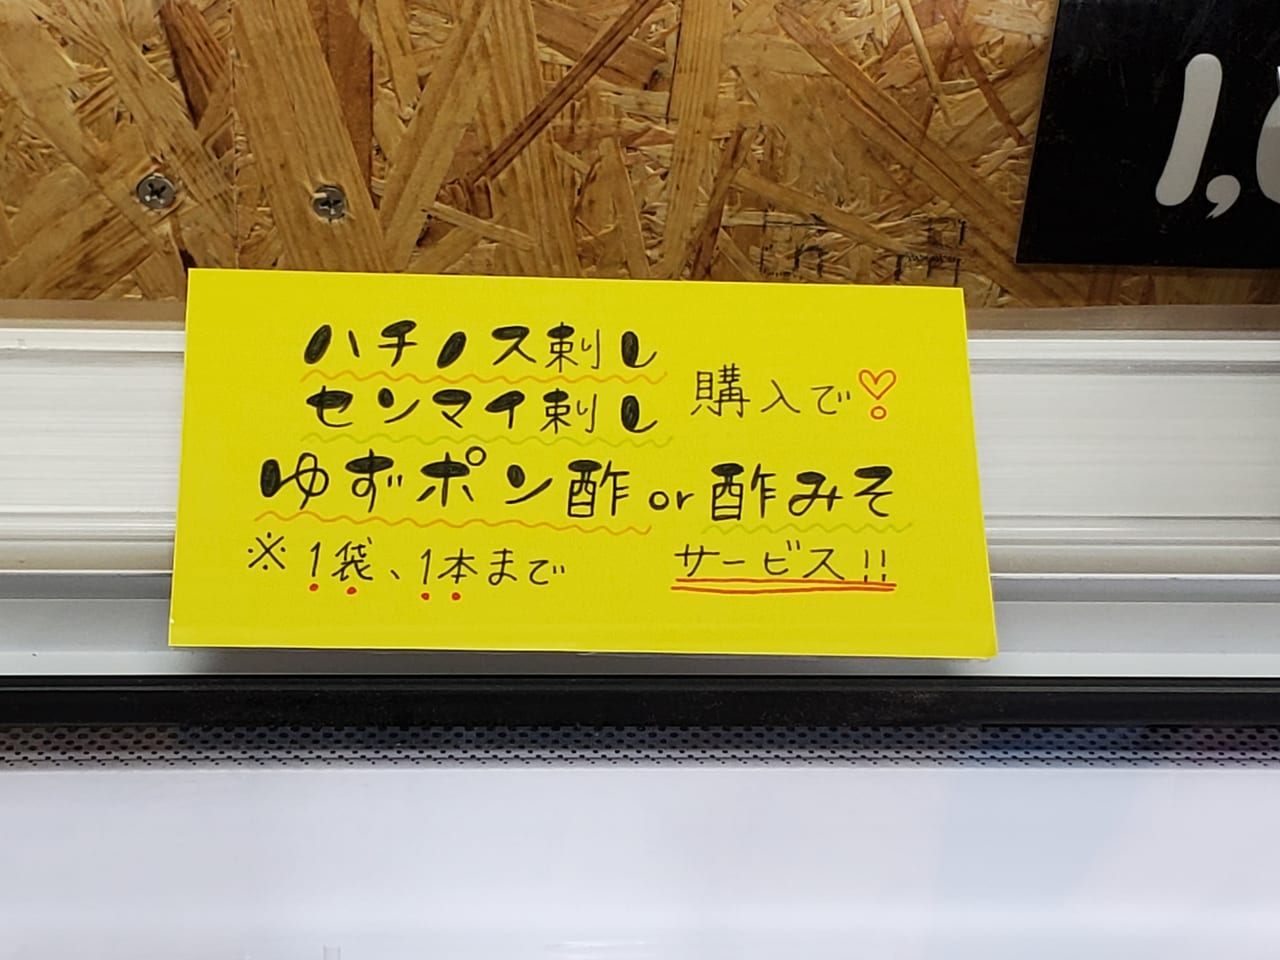 ハチノス刺し
センマイ刺し
購入で
ゆずポン酢or酢みそ
※1袋、1本まで
サービス!!
1,